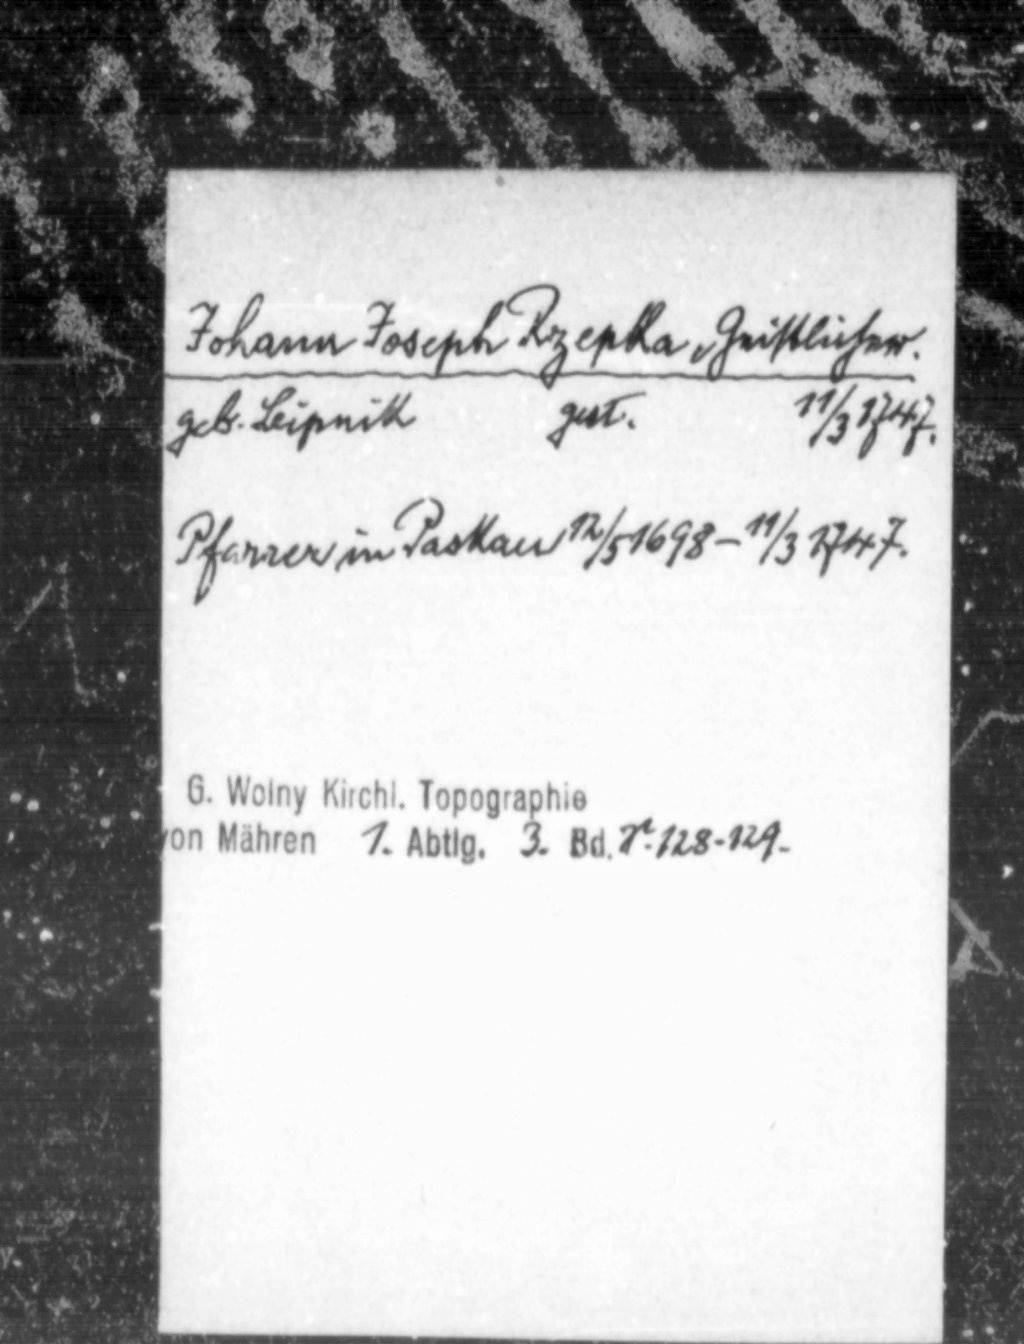 Johann Joseph Rzepka, Geistlicher.
geb. Leipnik gest. 11/3 1747.
Pfarrer in Paskau 12/5 1698 – 11/3 1747.
G. Wolny Kirchl. Topographie
von Mähren 1. Abtlg. 3. Bd. 128-129.